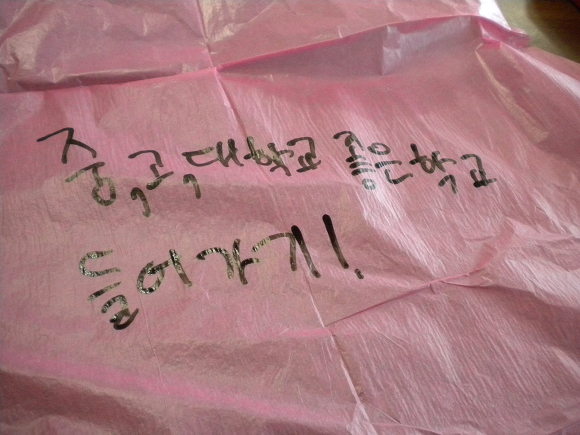 중,고,대학교 좋은학교
들어가기!